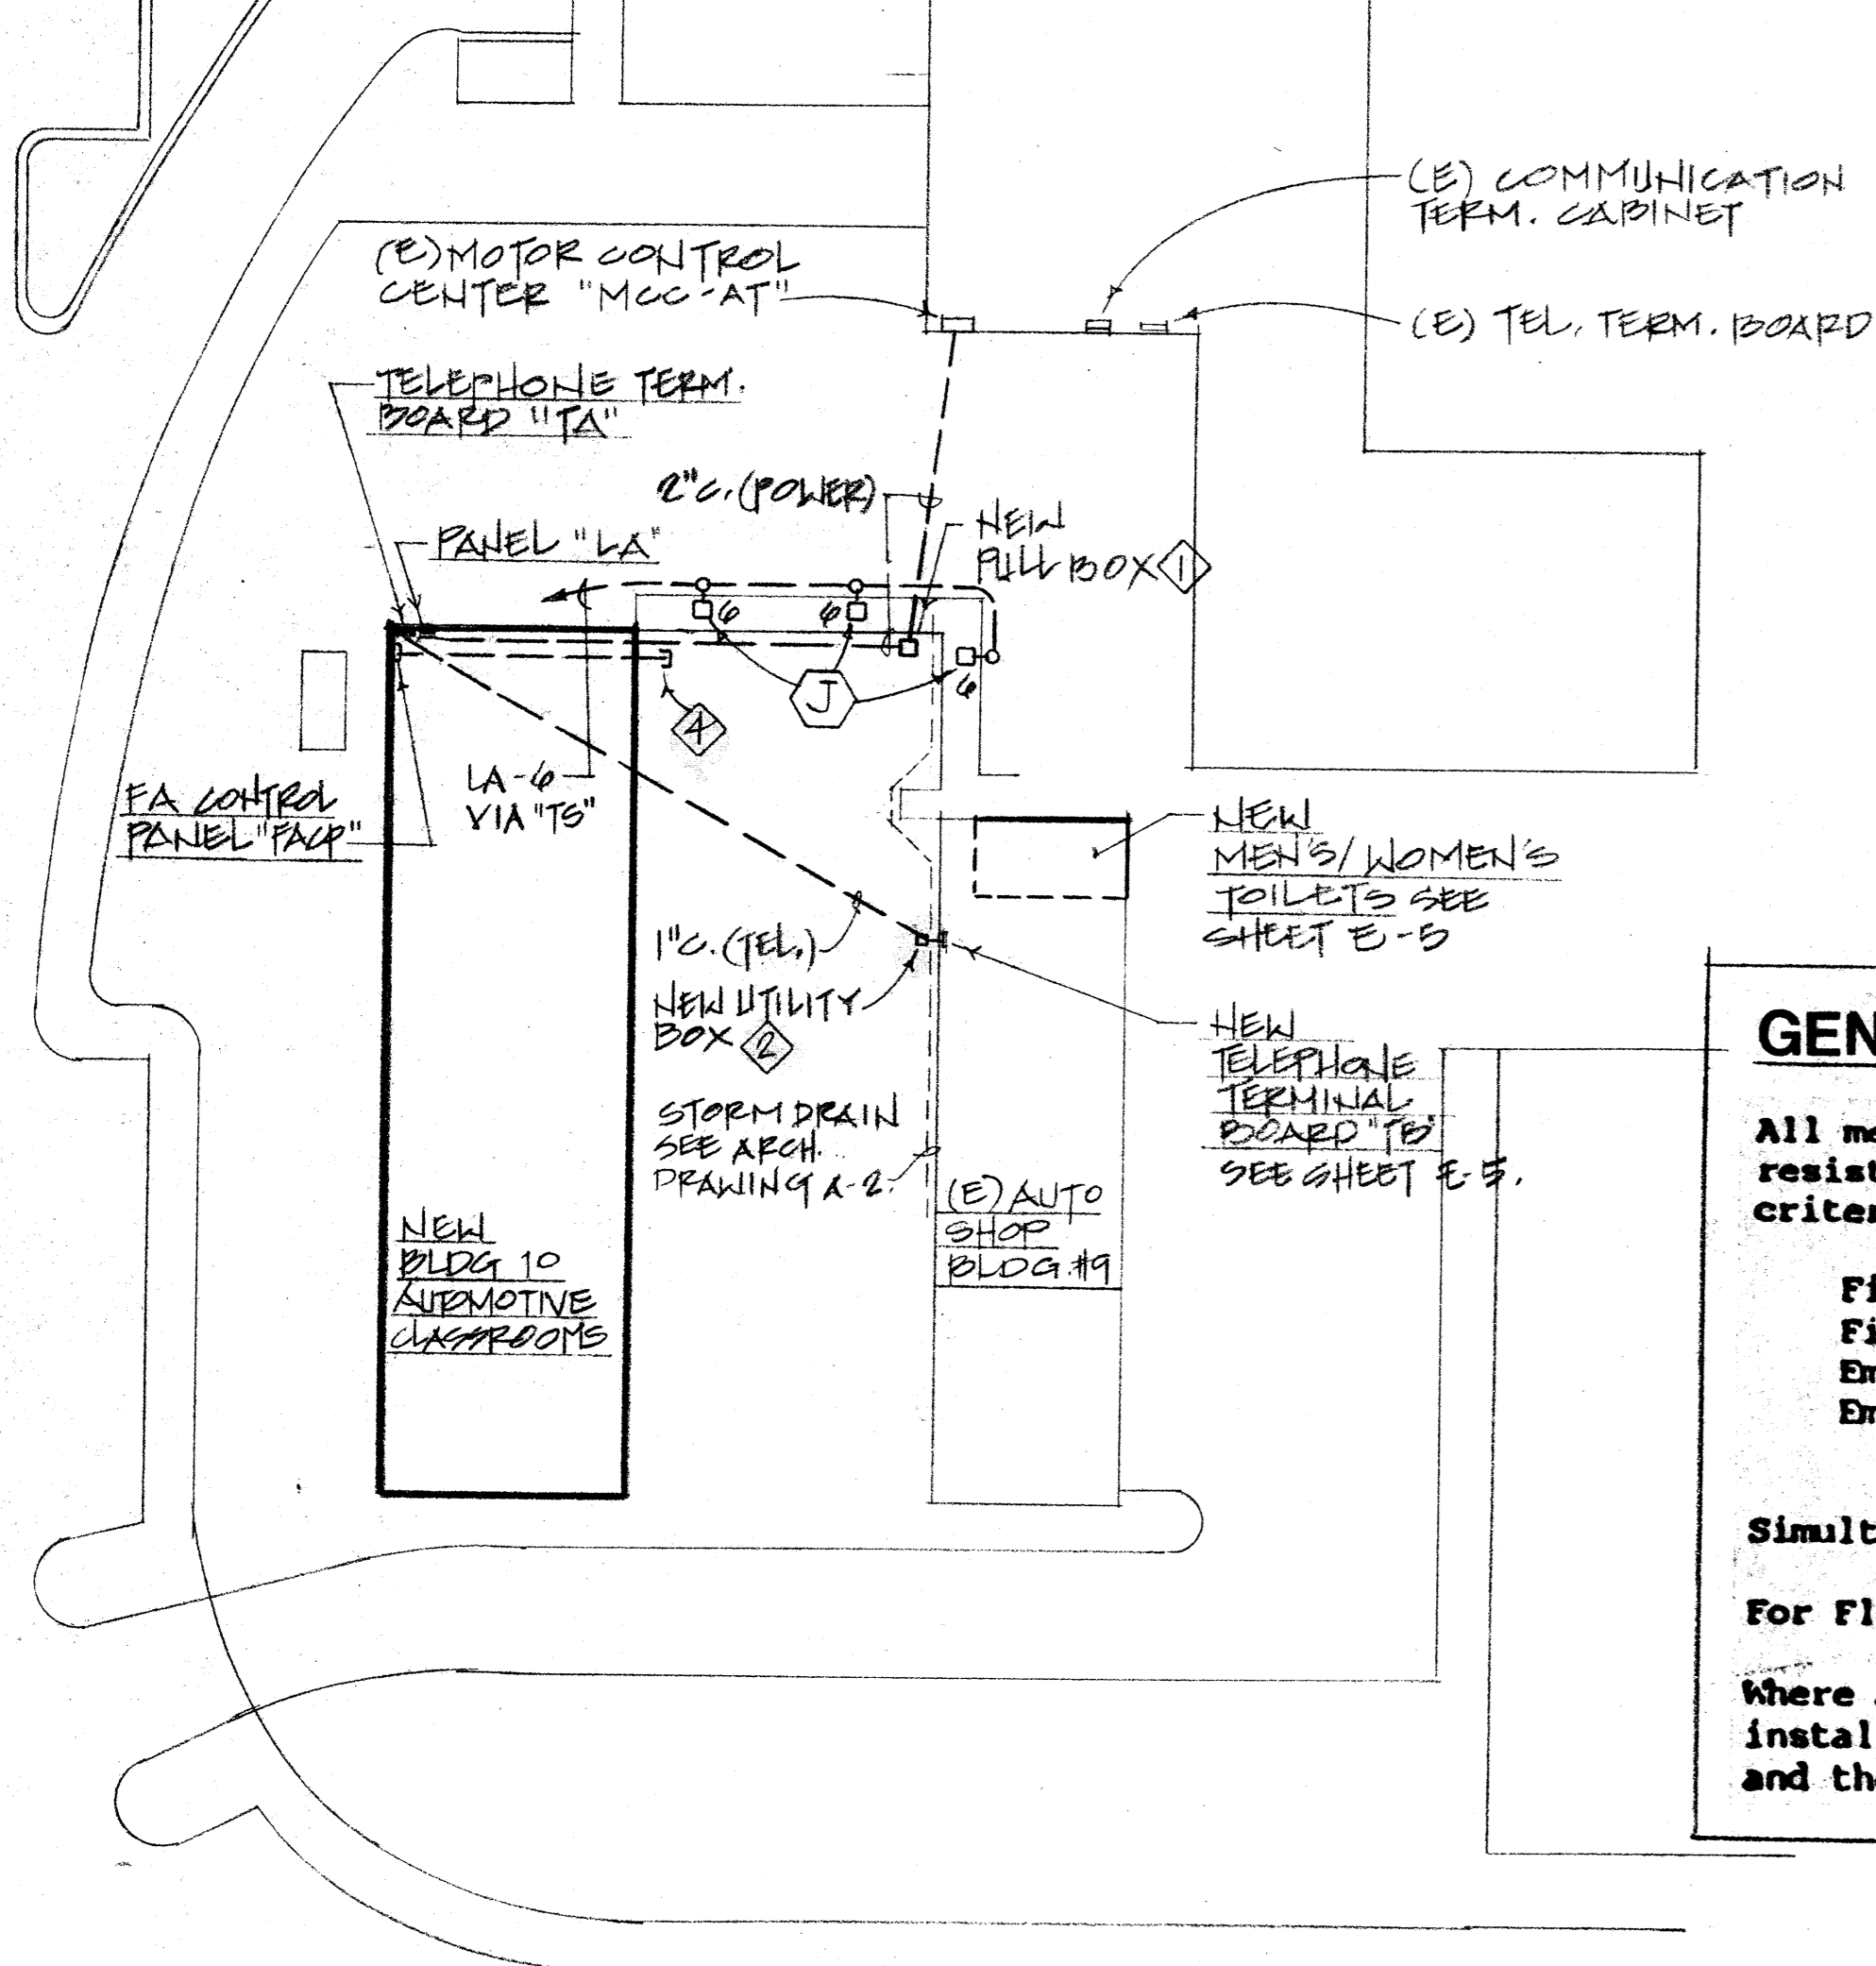 (E) COMMUNICATION
TERM. CABINET
(E) MOTOR CONTROL
CENTER "MCC-AT"
(E) TEL. TERM. BOARD
TELEPHONE TERM.
BOARD "TA"
2"C. (POWER)
NEW
PULL BOX 1
PANEL "LA"
6
6
6
J
4
LA-6
VIA "TS"
FA CONTROL
PANEL "FACP"
NEW
MEN'S/WOMEN'S
TOILETS SEE
SHEET E-5
1"C. (TEL.)
NEW UTILITY
BOX 2
NEW
TELEPHONE
TERMINAL
BOARD "TB"
SEE SHEET E-5.
STORM DRAIN
SEE ARCH.
DRAWING A-2.
(E) AUTO
SHOP
BLDG. #9
NEW
BLDG 10
AUTOMOTIVE
CLASSROOMS
GEN
All
resist
criter
Fi
Fi
Em
Em
Simult
For Fl
Where
instal
and th